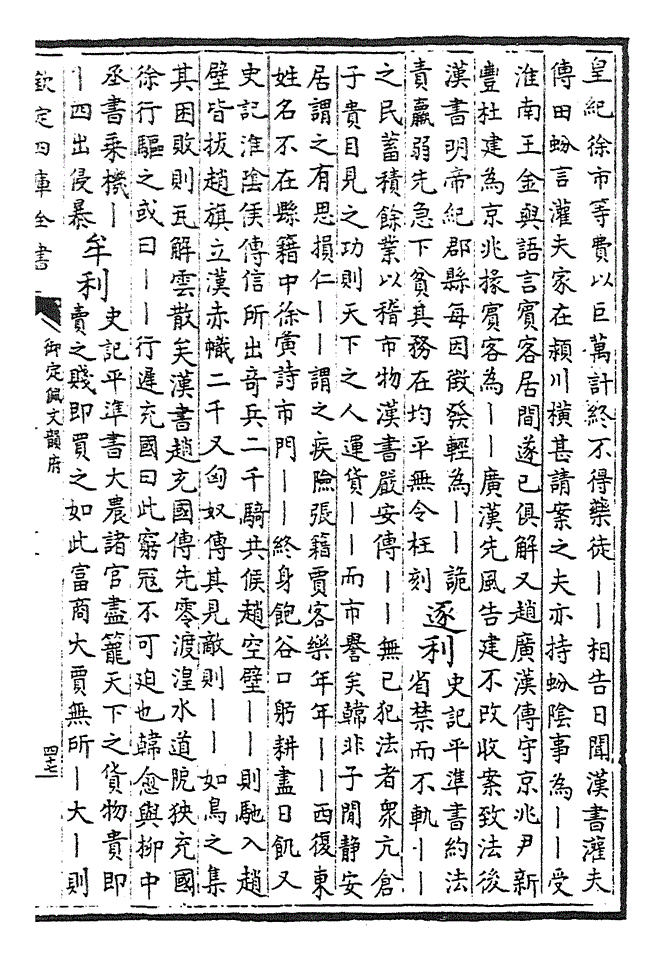 皇紀徐市等費以巨萬計終不得藥徒——相告日聞漢書灌夫
傳田蚡言灌夫家在潁川橫甚請案之夫亦持蚡陰事為——受
淮南王金與語言賓客居間遂已俱解又趙廣漢傳守京兆尹新
豐杜建為京兆掾賓客為——廣漢先風告建不改收案致法後
漢書明帝紀郡縣每因徵發輕為——詭
責羸弱先急下貧其務在均平無令枉刻
逐利
史記平準書約法
省禁而不軌——
之民蓄積餘業以稽市物漢書嚴安傳——無已犯法者衆亢倉
子貴目見之功則天下之人運貨——而市譽矣韓非子閒靜安
居謂之有思損仁——謂之疾險張籍賈客樂年年——西復東
姓名不在縣籍中徐夤詩市門——終身飽谷口躬耕盡日飢又
史記淮陰侯傳信所出奇兵二千騎共候趙空壁——則馳入趙
壁皆拔趙旗立漢赤幟二千又匈奴傳其見敵則——如鳥之集
其困敗則瓦解雲散矣漢書趙充國傳先零渡湟水道阨狹充國
徐行驅之或曰——行遲充國曰此窮寇不可迫也韓愈與柳中
丞書乘機—
—四出侵暴
牟利
史記平準書大農諸官盡籠天下之貨物貴即
賣之賤即買之如此富商大賈無所—大—則
欽定四庫全書
御定佩文韻府
四七